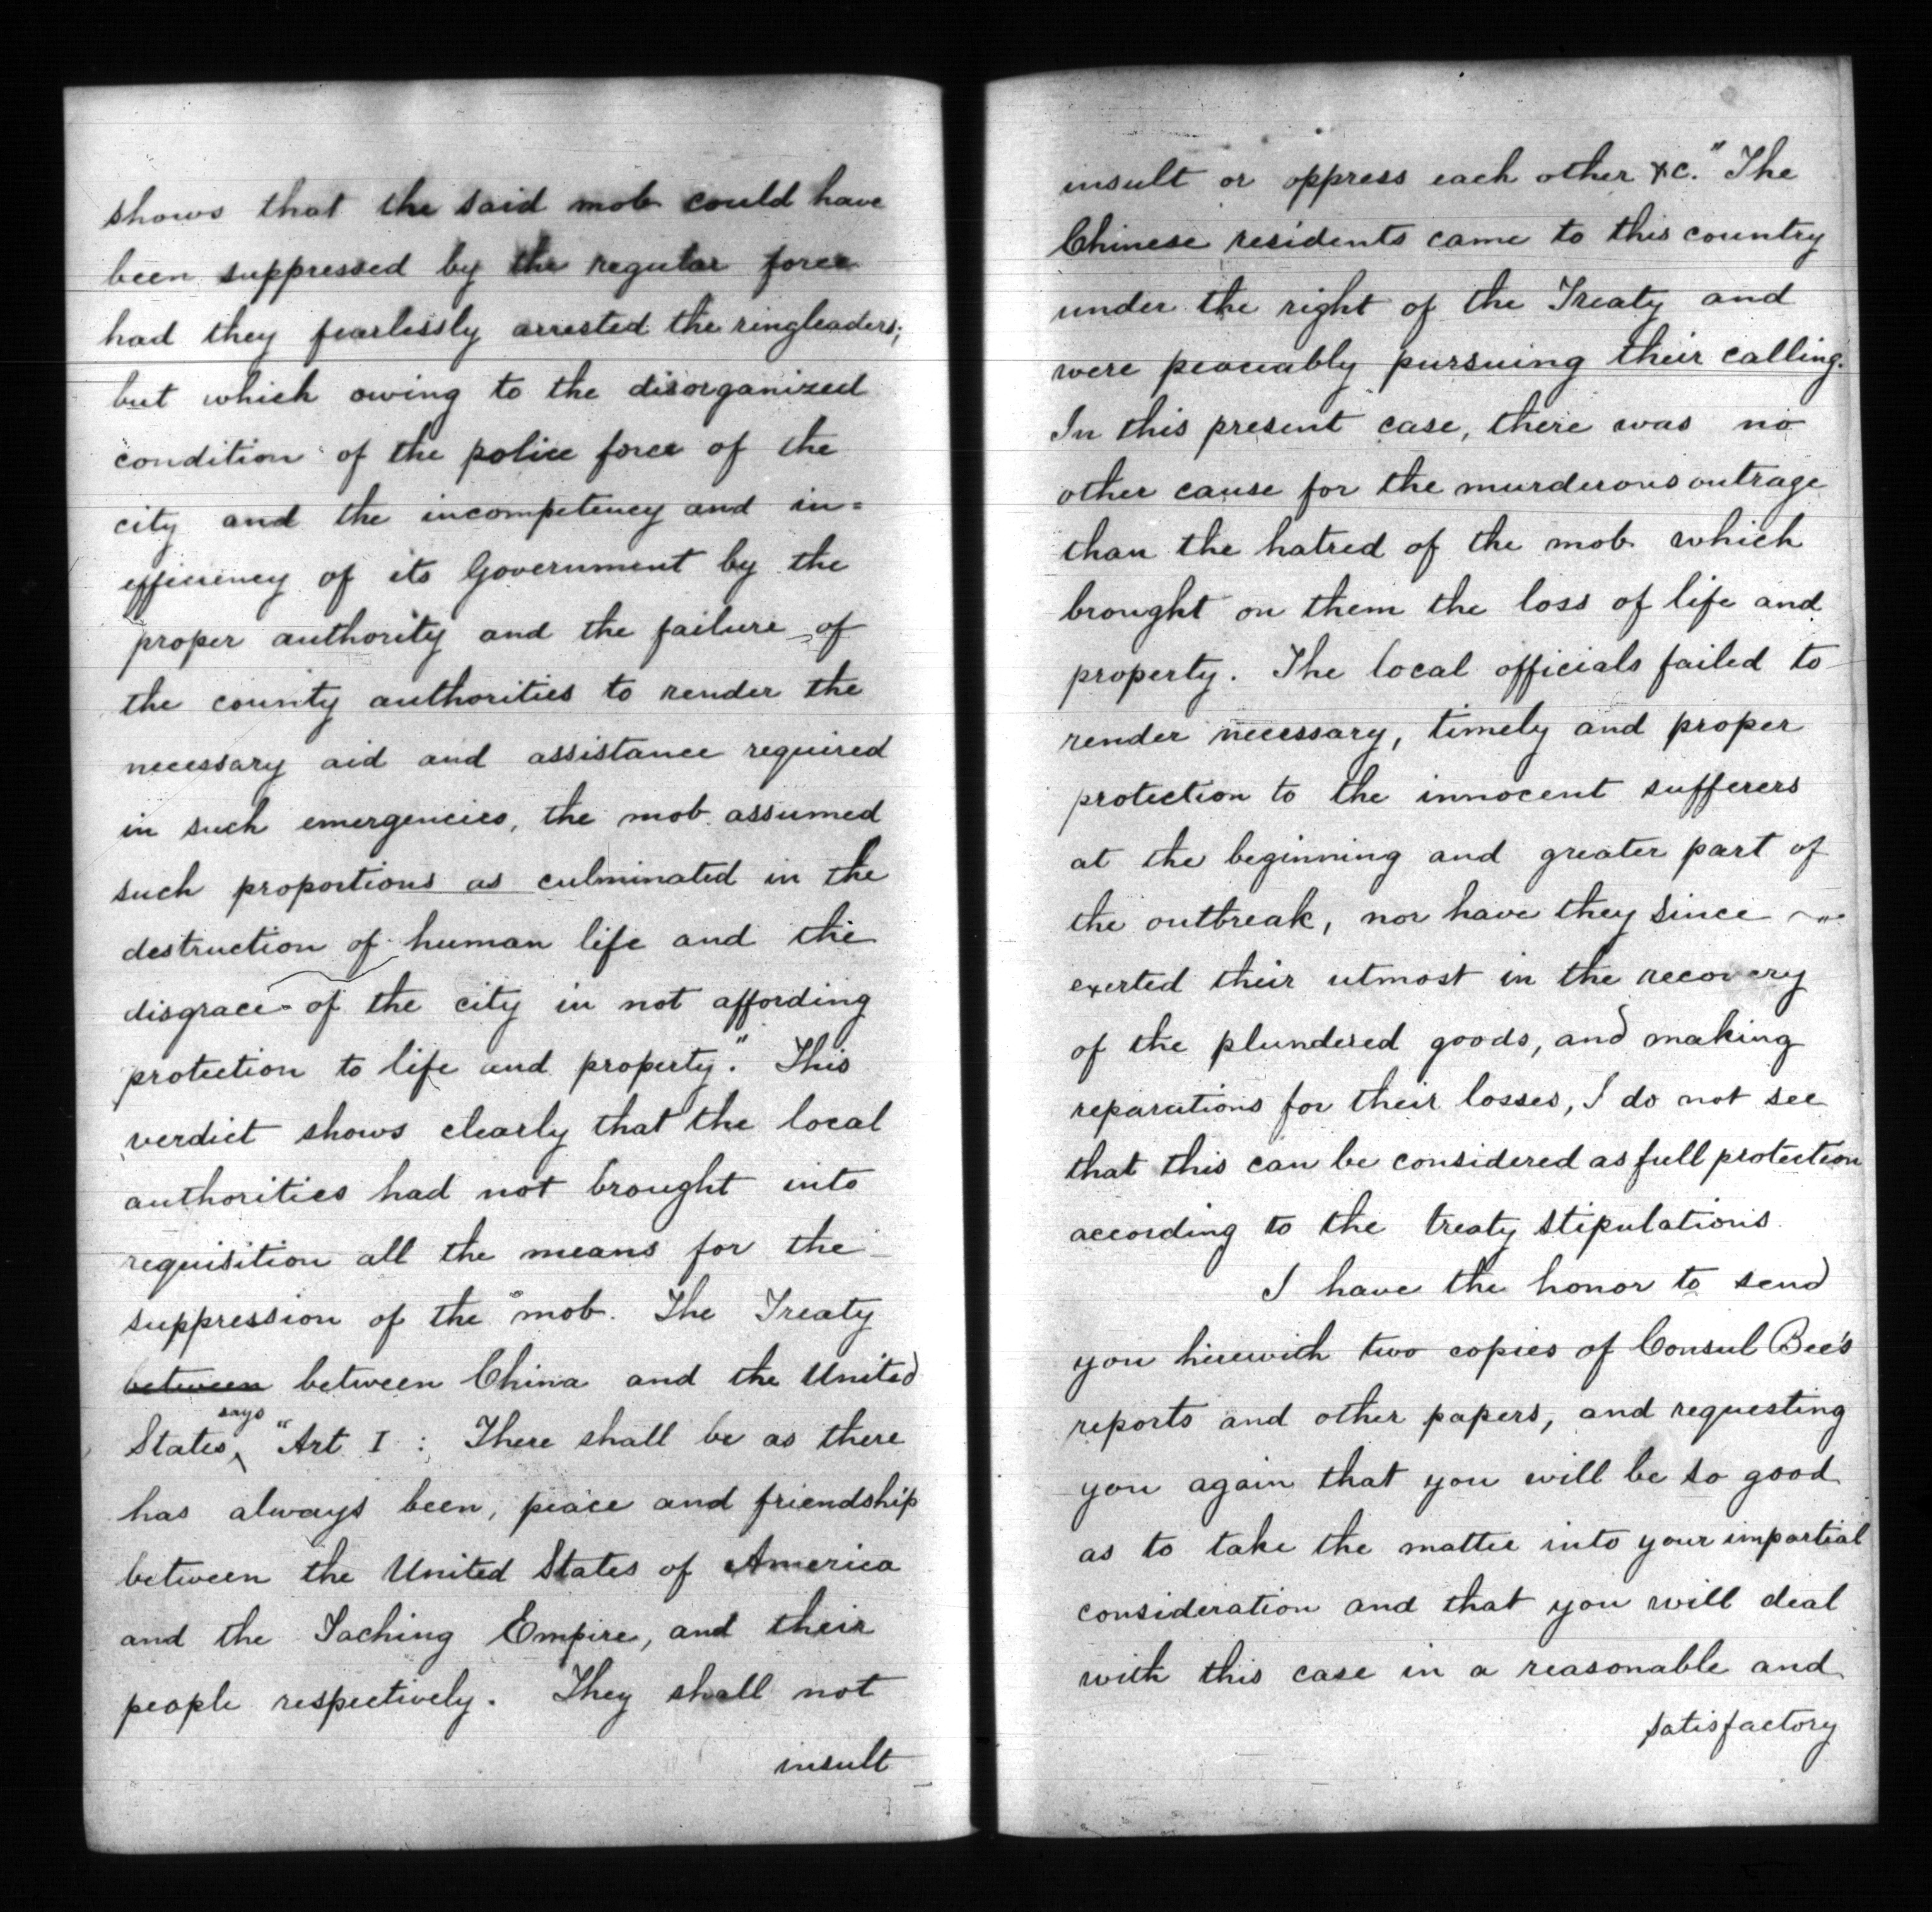 shows that the said mob could have
been suppressed by the regular force
had they fearlessly arrested the ringleaders;
but which owing to the disorganized
condition of the police force of the
city and the incompetency and in=
efficiency of its Government by the
proper authority and the failure of
the county authorities to render the
necessary aid and assistance required
in such emergencies, the mob assumed
such proportions as culminated in the
destruction of human life and the
disgrace of the city in not affording
protection to life and property." This
verdict shows clearly that the local
authorities had not brought into
requisition all the means for the
suppression of the mob. The Treaty
between between China and the United
States, says "Art I : There shall be as there
has always been, peace and friendship
between the United States of America
and the Taching Empire, and their
people respectively. They shall not
insult
insult or oppress each other &c." The
Chinese residents came to this country
under the right of the Treaty and
were peaceably pursuing their calling.
In this present case, there was no
other cause for the murderous outrage
than the hatred of the mob which
brought on them the loss of life and
property. The local officials failed to
render necessary, timely and proper
protection to the innocent sufferers
at the beginning and greater part of
the outbreak, nor have they since
exerted their utmost in the recovery
of the plundered goods, and making
reparations for their losses, I do not see
that this can be considered as full protection
according to the treaty stipulations.
I have the honor to send
you herewith two copies of Consul Bee's
reports and other papers, and requesting
you again that you will be so good
as to take the matter into your impartial
consideration and that you will deal
with this case in a reasonable and
satisfactory